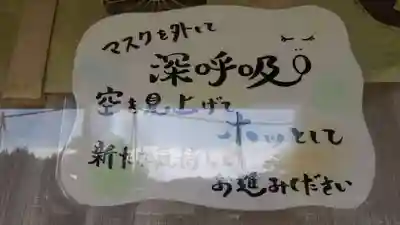 マスクを外して
深呼吸
空を見上げて
ホッとして
新たな
お進みください